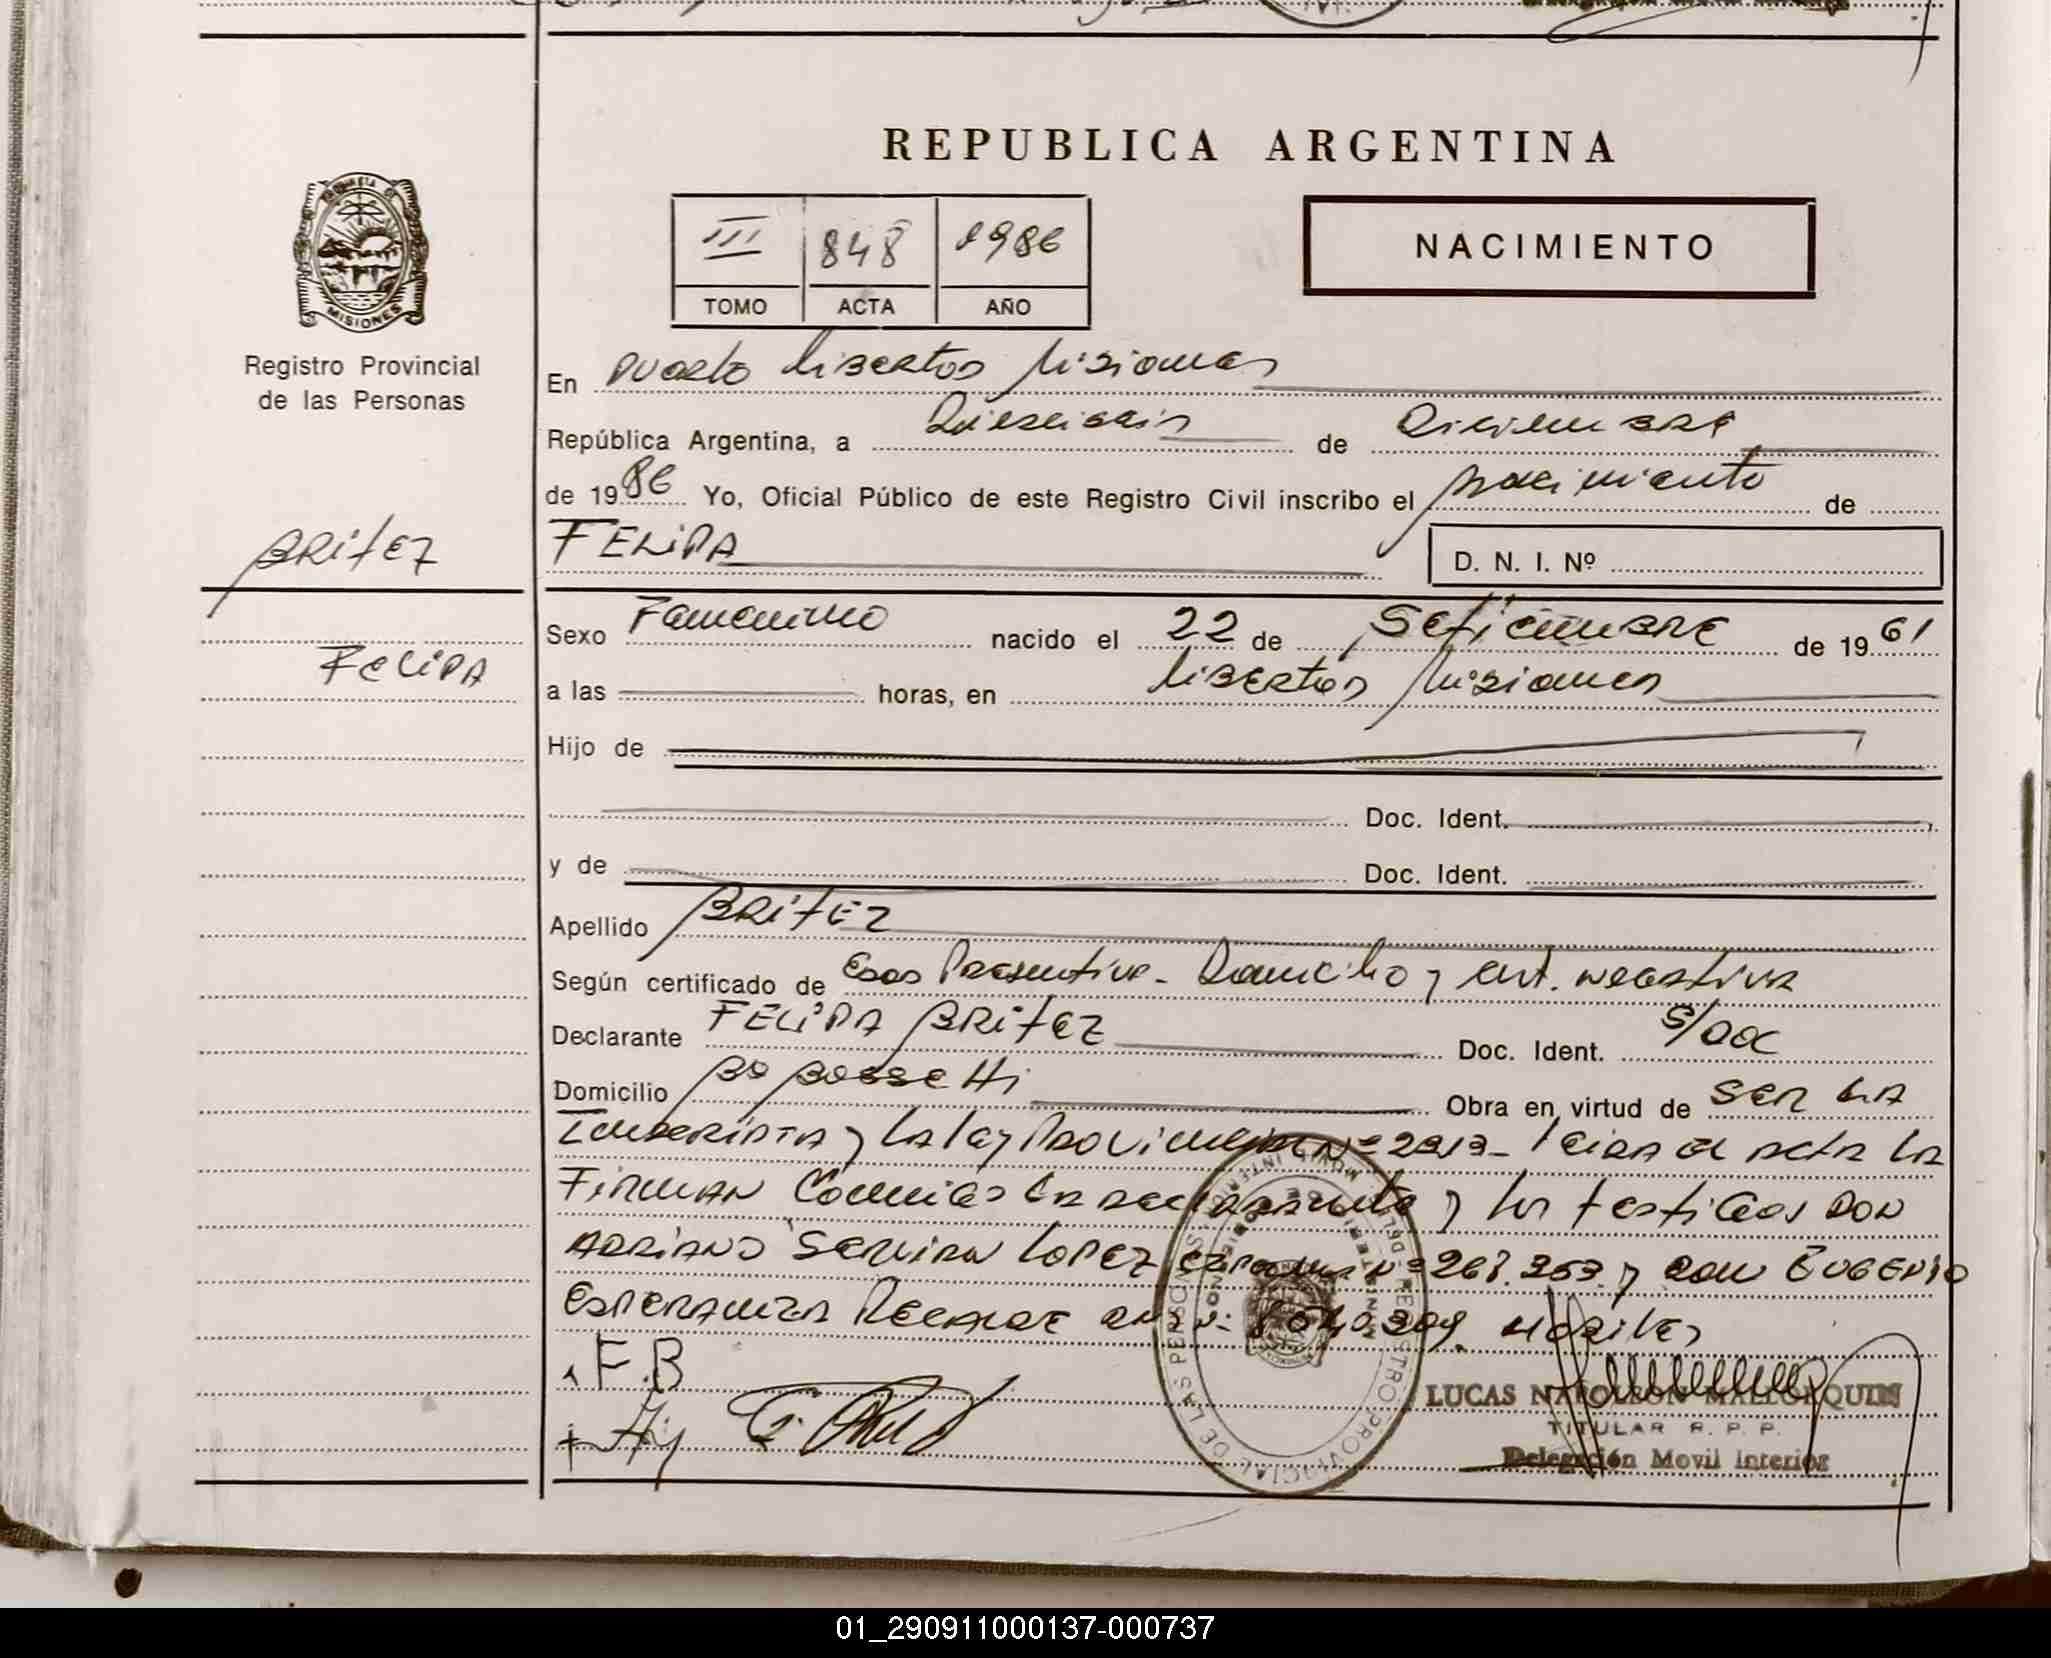 REPUBLICA ARGENTINA
NACIMIENTO
III 848 1986
TOMO ACTA AÑO
MISIONES
Registro Provincial
de las Personas
BRITEZ
FELIPA
En Puerto Libertad Misiones
República Argentina, a Dieciseis de Diciembre
de 1986 Yo, Oficial Público de este Registro Civil inscribo el nacimiento de
FELIPA
D. N. I. Nº
Sexo Femenino nacido el 22 de Setiembre de 1961
a las horas, en Libertad Misiones
Hijo de
Doc. Ident.
y de Doc. Ident.
Apellido BRITEZ
Según certificado de Edad Presuntiva - Domicilio y cert. negativa
Declarante FELIPA BRITEZ Doc. Ident. S/Doc
Domicilio Bº Bossetti Obra en virtud de SER LA
Inscripta y la ley Provincial Nº 2213 - leida el acta la
Firman conmigo la declarante y los testigos DON
ADRIANO SERVIAN LOPEZ Nº 261.353 y don EUGENIO
ESPERANZA RECALDE DNI Nº 8040309
F.B
LUCAS NAPOLEON MALLORQUIN
TITULAR R. P. P.
Delegación Movil Interior
REGISTRO PROVINCIAL DE LAS PERSONAS
01_290911000137-000737